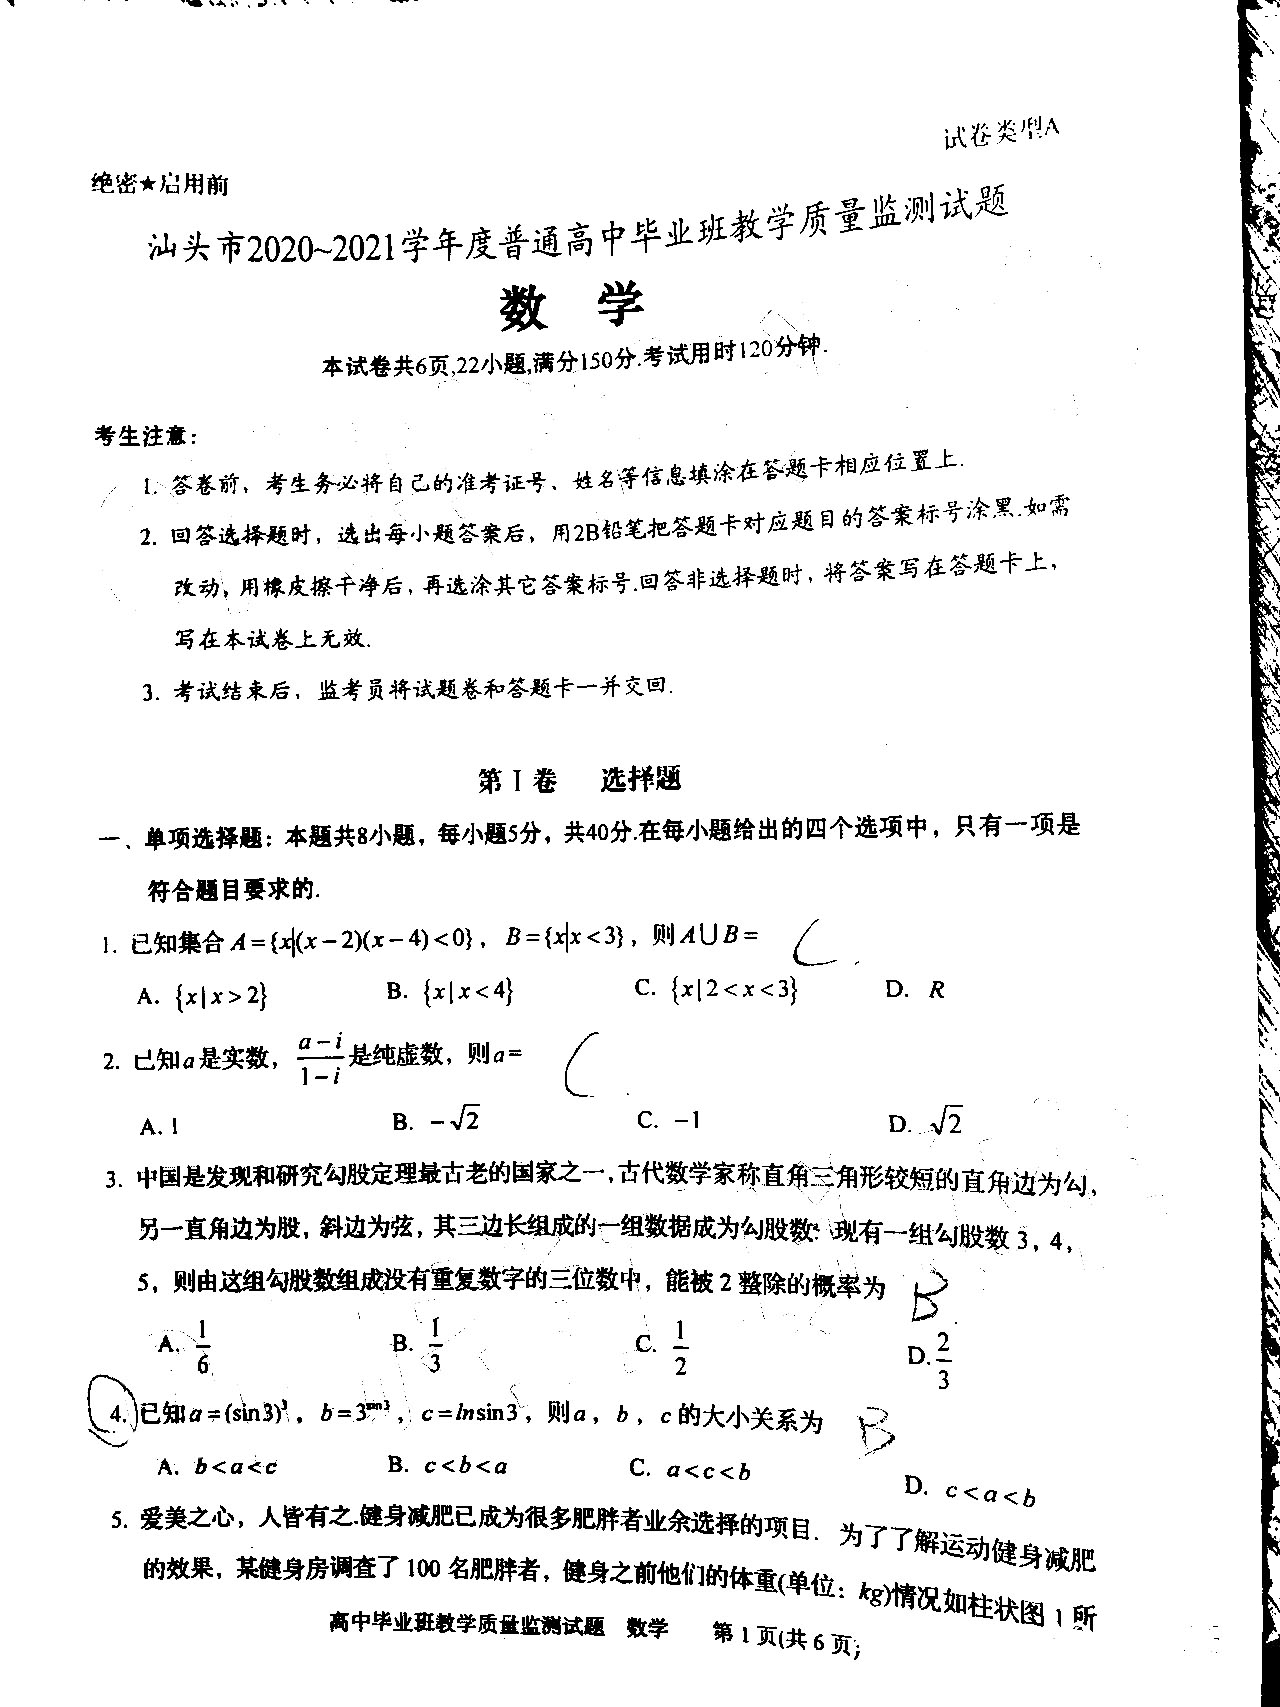 试卷类型A
绝密★启用前
汕头市2020~2021学年度普通高中毕业班教学质量监测试题
数 学
本试卷共6页,22小题,满分150分.考试用时120分钟.
考生注意:
1. 答卷前，考生务必将自己的准考证号、姓名等信息填涂在答题卡相应位置上.
2. 回答选择题时，选出每小题答案后，用2B铅笔把答题卡对应题目的答案标号涂黑.如需
改动，用橡皮擦干净后，再选涂其它答案标号.回答非选择题时，将答案写在答题卡上，
写在本试卷上无效.
3. 考试结束后，监考员将试题卷和答题卡一并交回.
第Ⅰ卷 选择题
一、单项选择题：本题共8小题，每小题5分，共40分.在每小题给出的四个选项中，只有一项是
符合题目要求的.
1. 已知集合 A={x|(x-2)(x-4)<0}，B={x|x<3}，则A∪B= C
A. {x|x>2} B. {x|x<4} C. {x|2<x<3} D. R
2. 已知a是实数，(a-i)/(1-i)是纯虚数，则a= C
A. 1 B. -√2 C. -1 D. √2
3. 中国是发现和研究勾股定理最古老的国家之一,古代数学家称直角三角形较短的直角边为勾，
另一直角边为股，斜边为弦，其三边长组成的一组数据成为勾股数. 现有一组勾股数 3，4，
5，则由这组勾股数组成没有重复数字的三位数中，能被 2 整除的概率为 B
A. 1/6 B. 1/3 C. 1/2 D. 2/3
4. 已知a=(sin3)³，b=3^sin3，c=lnsin3，则a，b，c的大小关系为 B
A. b<a<c B. c<b<a C. a<c<b D. c<a<b
5. 爱美之心，人皆有之.健身减肥已成为很多肥胖者业余选择的项目. 为了了解运动健身减肥
的效果，某健身房调查了 100 名肥胖者，健身之前他们的体重(单位：kg)情况如柱状图 1 所
高中毕业班教学质量监测试题 数学 第 1 页(共 6 页)